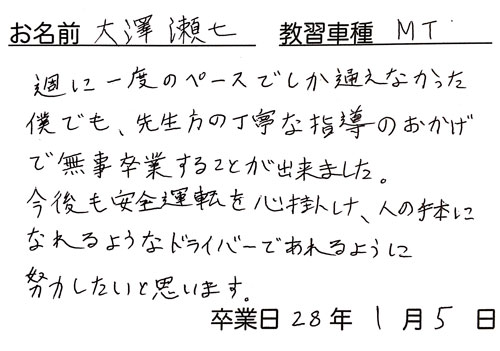 お名前 大澤 瀬七 教習車種 MT
週に一度のペースでしか通えなかった
僕でも、先生方の丁寧な指導のおかげ
で無事卒業することが出来ました。
今後も安全運転を心掛け、人の手本に
なれるようなドライバーであれるように
努力したいと思います。
卒業日 28 年 1 月 5 日